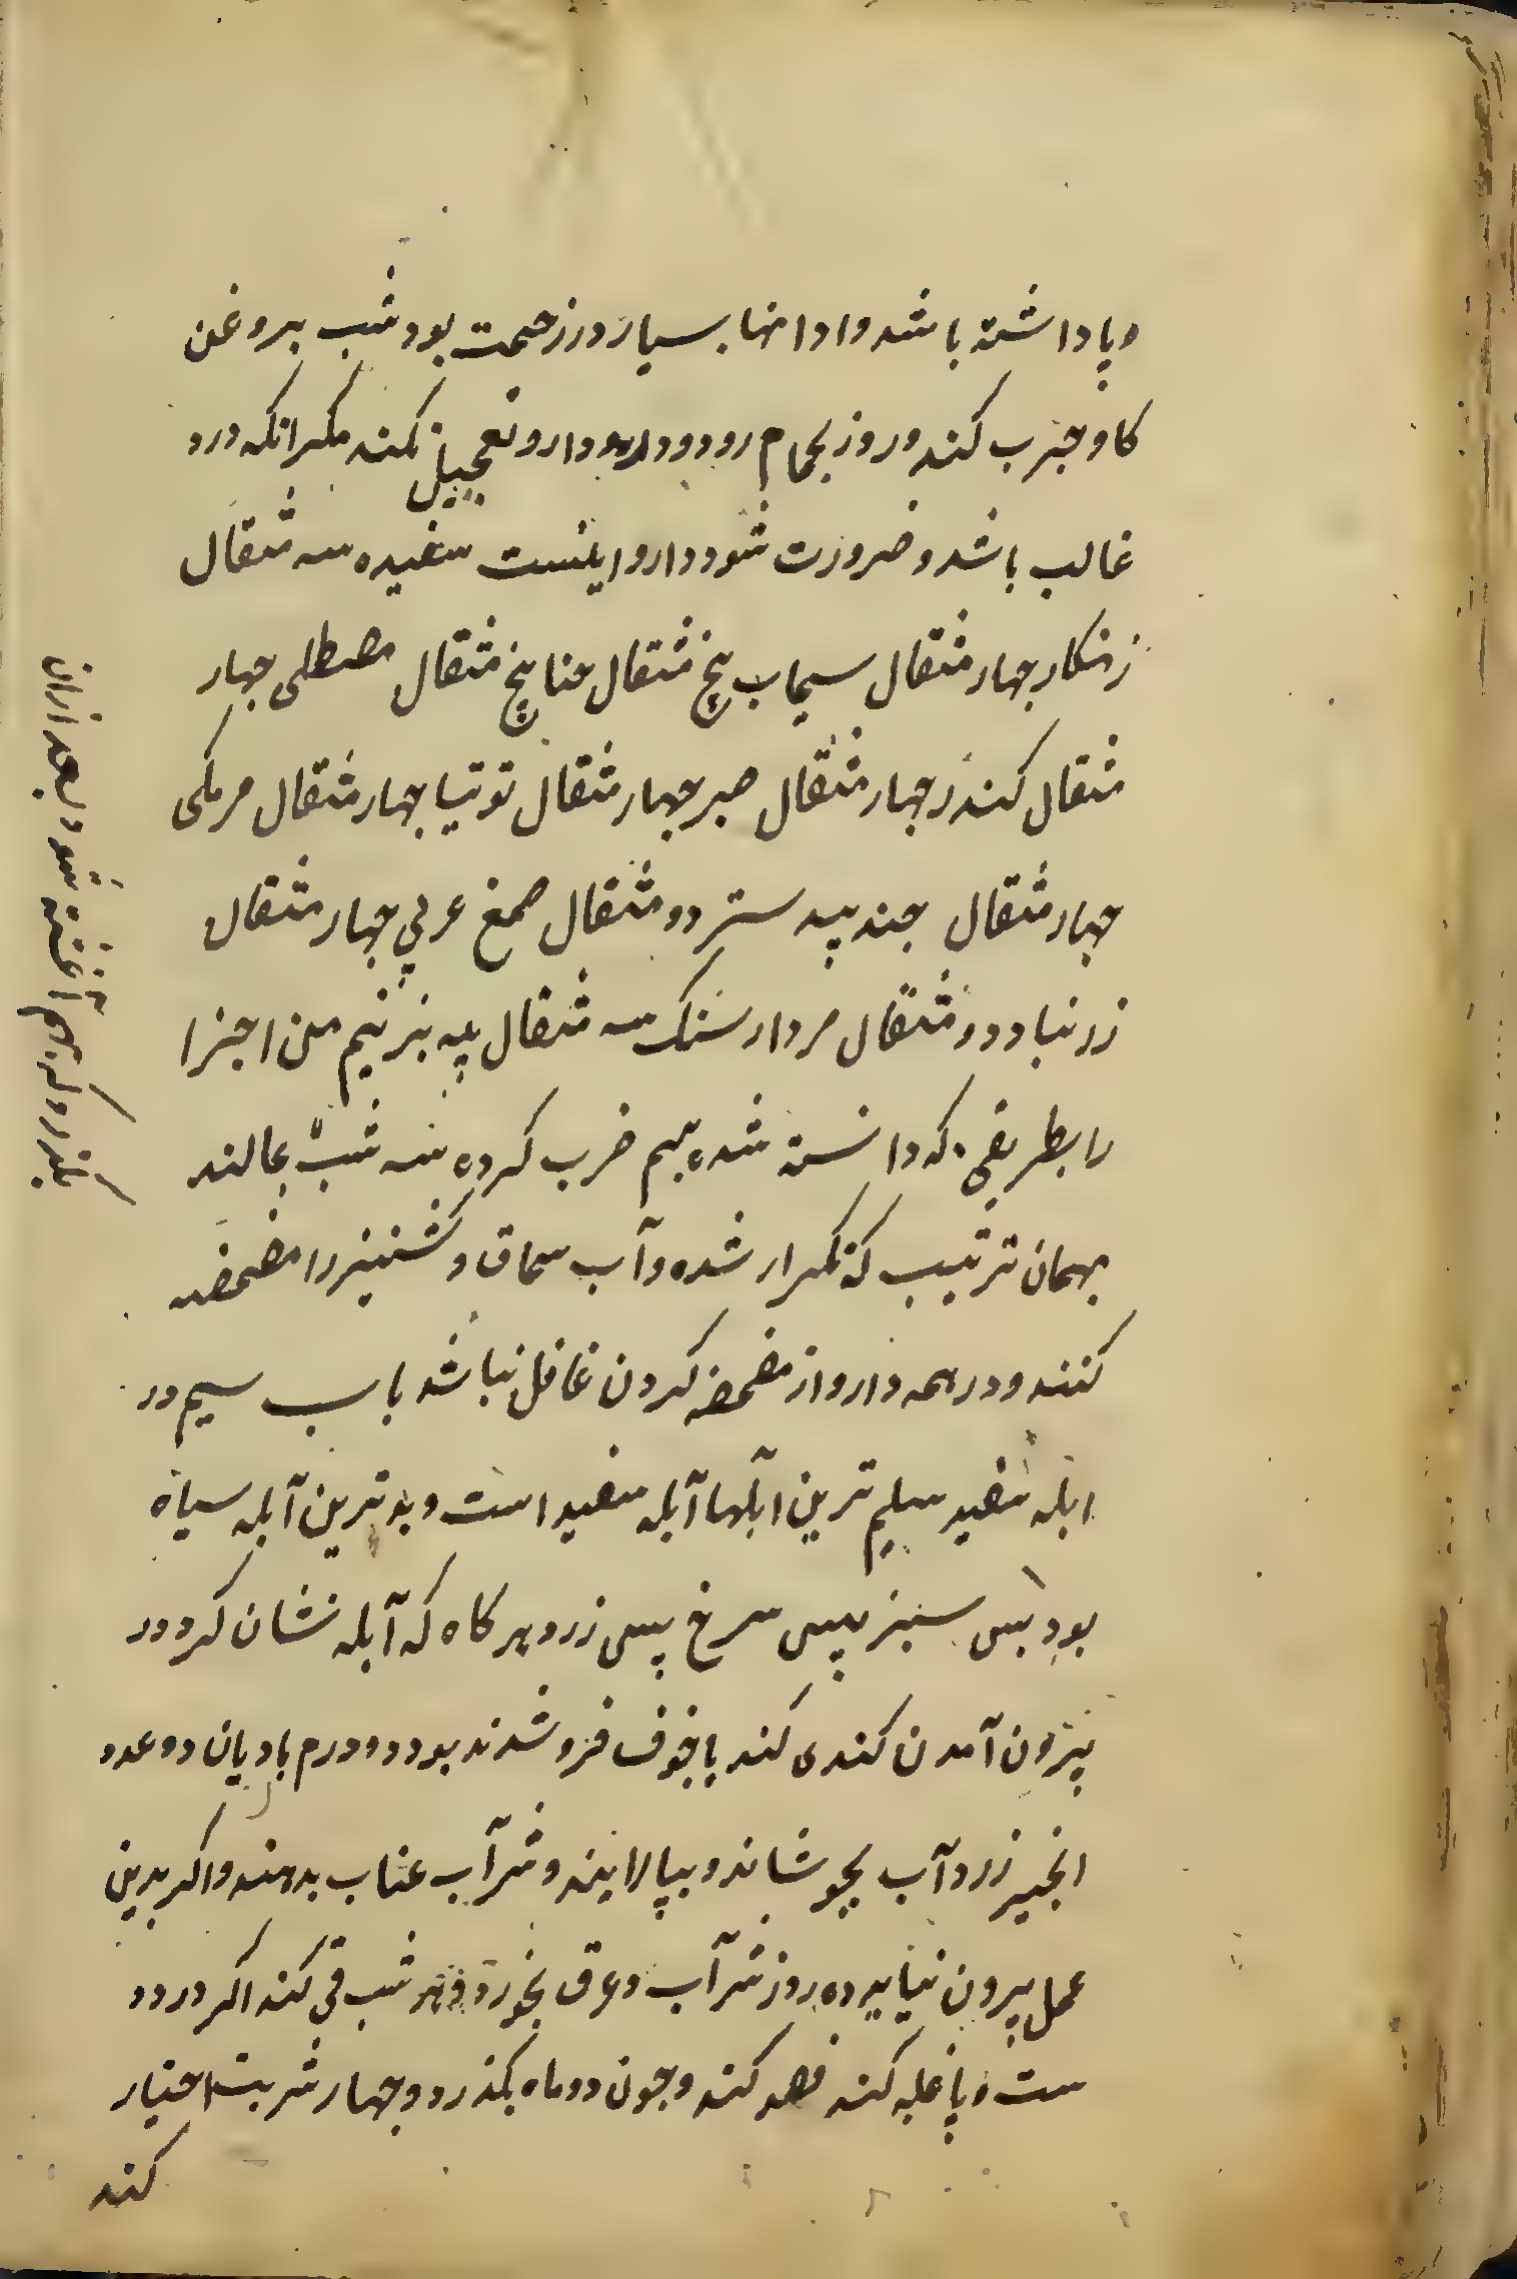 وپا داشته باشد وادانها بسیار در زحمت بود شب بروغن
کاو جرب کند وروز بحمام رود ودارو وتعجیل نکند مکر انکه درد
غالب باشد وضرورت شود دارو اینست سفیده سه مثقال
زنکار جهار مثقال سیماب پنج مثقال حنا پنج مثقال مصطلی جهار
مثقال کندر جهار مثقال صبر جهار مثقال توتیا جهار مثقال مرمکی
جهار مثقال جند بیدستر دو مثقال صمغ عربی جهار مثقال
زرنباد دو مثقال مردار سنک سه مثقال پیه بز نیم من اجزا
را بطریقی که دانسته شده بهم ضرب کرده سه شب بمالند
بهمان ترتیب که تکرار شده وآب سماق وکشنیز را مضمضه
کنند ودر همه دارو از مضمضه کردن غافل نباشد باب سیم در
ابله سفید سلیم ترین ابلها آبله سفید است وبدترین آبله سیاه
بود پس سبز پس سرخ پس زرد هر کاه که آبله نشان کرد ودر
بیرون آمدن کندی کند یا خوف فرو شدن بود دو درم بادیان دو عدد
انجیر زرد آب بجوشاند وبپالایند وشرآب عناب بدهند واکر بدین
عمل بیرون نیاید ده روز شرآب وعرق بخورد وهر شب قی کند اکر درد د
ست وپا غلبه کند فصد کند وجون دو ماه بکذرد وجهار شربت اختیار
کند